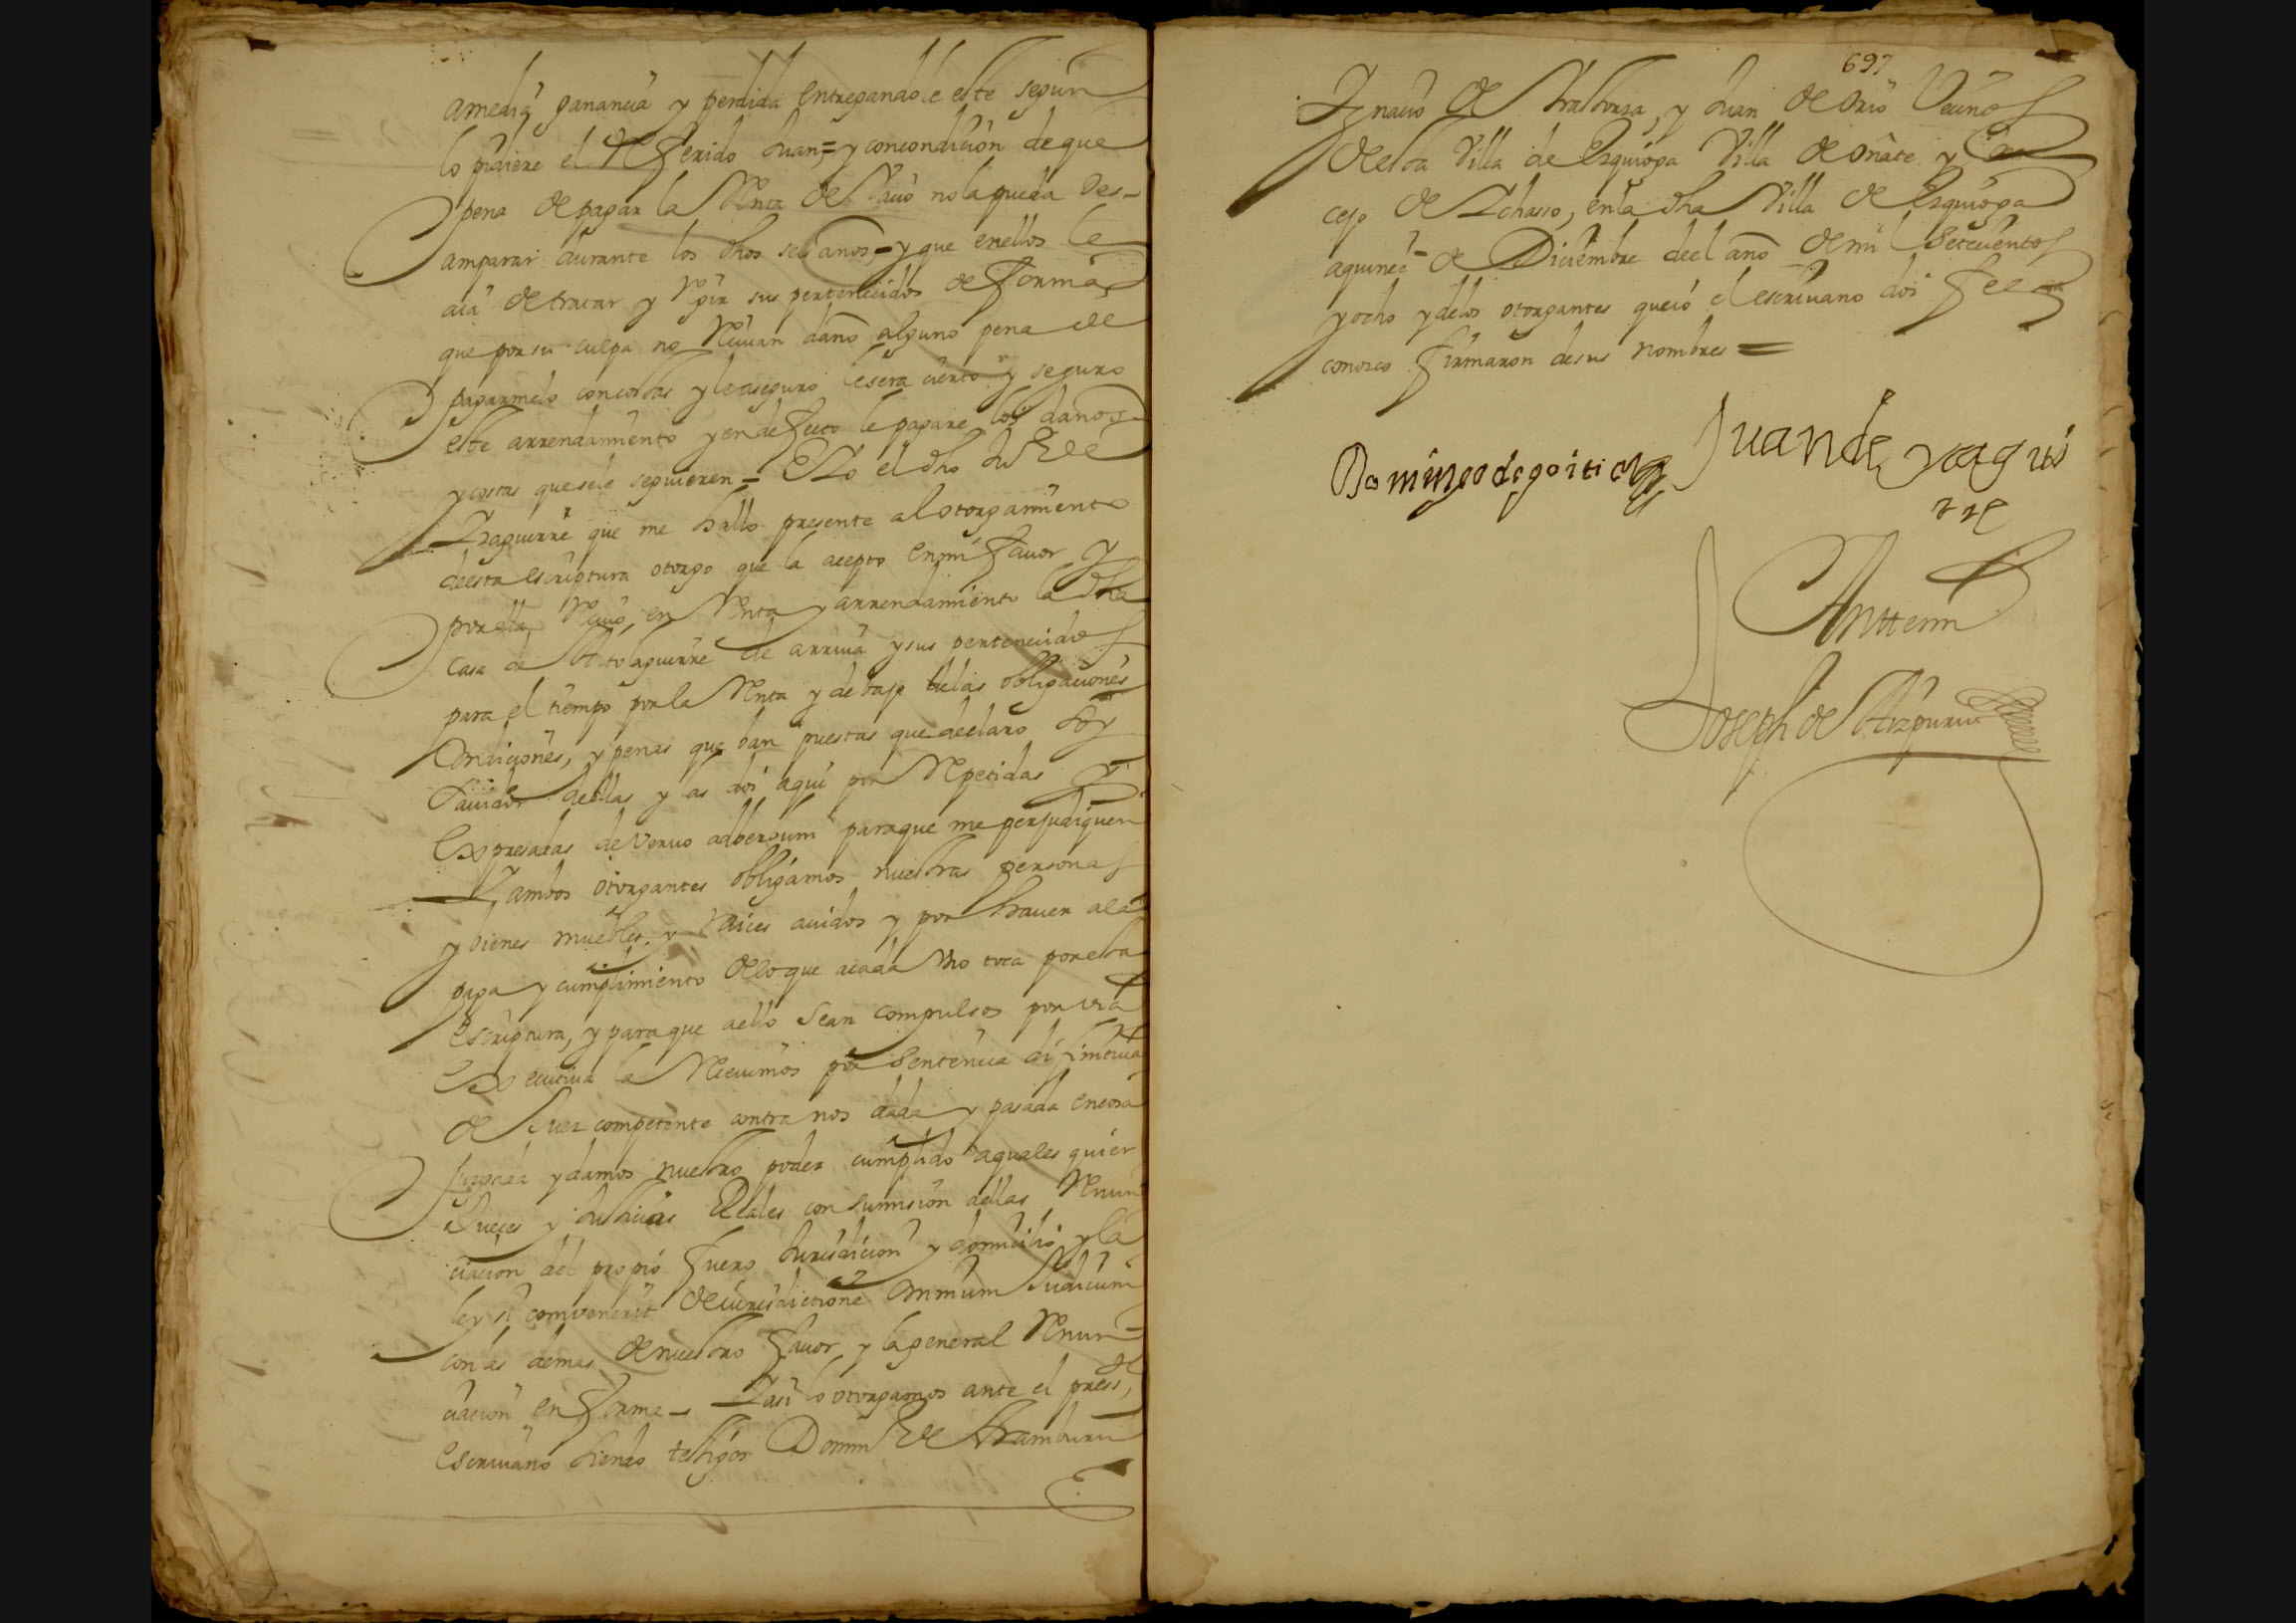 amedia ganancia y perdida entregandole este segun
lo pidiere el referido Juan = y concondicion de que
pena de pagar la renta de vacio no la pueda des-
amparar durante los dhos seis anos = y que en ellos le
aia de tratar y regir sus pertenecidos de forma
que por su culpa no reciuan daño alguno pena de
pagarmelo concostas y le aseguro le sera cierto y seguro
este arrendamiento y en defecto le pagare los daños
y costas que se le seguieren = E Yo el dho Ju° de
Yraguirre que me hallo presente al otorgamiento
de esta escriptura otorgo que la acepto en mi fauor y
por ella reciuo, en renta y arrendamiento la dha
casa de de arriua y sus pertenecidos
para el tiempo por la renta y debajo de las obligaciones
condiciones, y penas que ban puestas que declaro soy
sauidor dellas y las doi aqui por repetidas y
expresadas de veruo adberbum para que me perjudiquen
Y ambos otorgantes obligamos nuestras personas
y bienes muebles y raices auidos y por hauer a la
paga y cumplimiento de lo que acada vno toca por esta
escriptura, y para que aello sean compulsos por via
executiua la reciuimos por sentencia difinitiua
de Juez competente contra nos dada y pasada en cosa
juzgada y damos nuestro poder cumplido aquales quier
Jueces y Justicias Reales con sumision dellas renun
ciacion del propio fuero Jurisdicion y domicilio y la
ley si convenerit de iurisdictione omnium Judicum
con las demas de nuestro fauor y la general renun=
ciacion en forma = Y asi lo otorgamos ante el press.te
escriuano siendo testigos Domin° de Aramburu
697
Ygnacio de y Juan de Orio Vecinos
de esta Villa de Ezquioga Villa de Oñate y Con
cejo de Ychasso, en la dha Villa de Ezquioga
a quince de Diciembre de el año de mil Setecientos
y ocho y de los otorgantes que io el escriuano doi fee
conozco firmaron de sus nombres =
Domingo de goitia Juan de yragui
rre
Antte mi
Joseph de Aizpuru